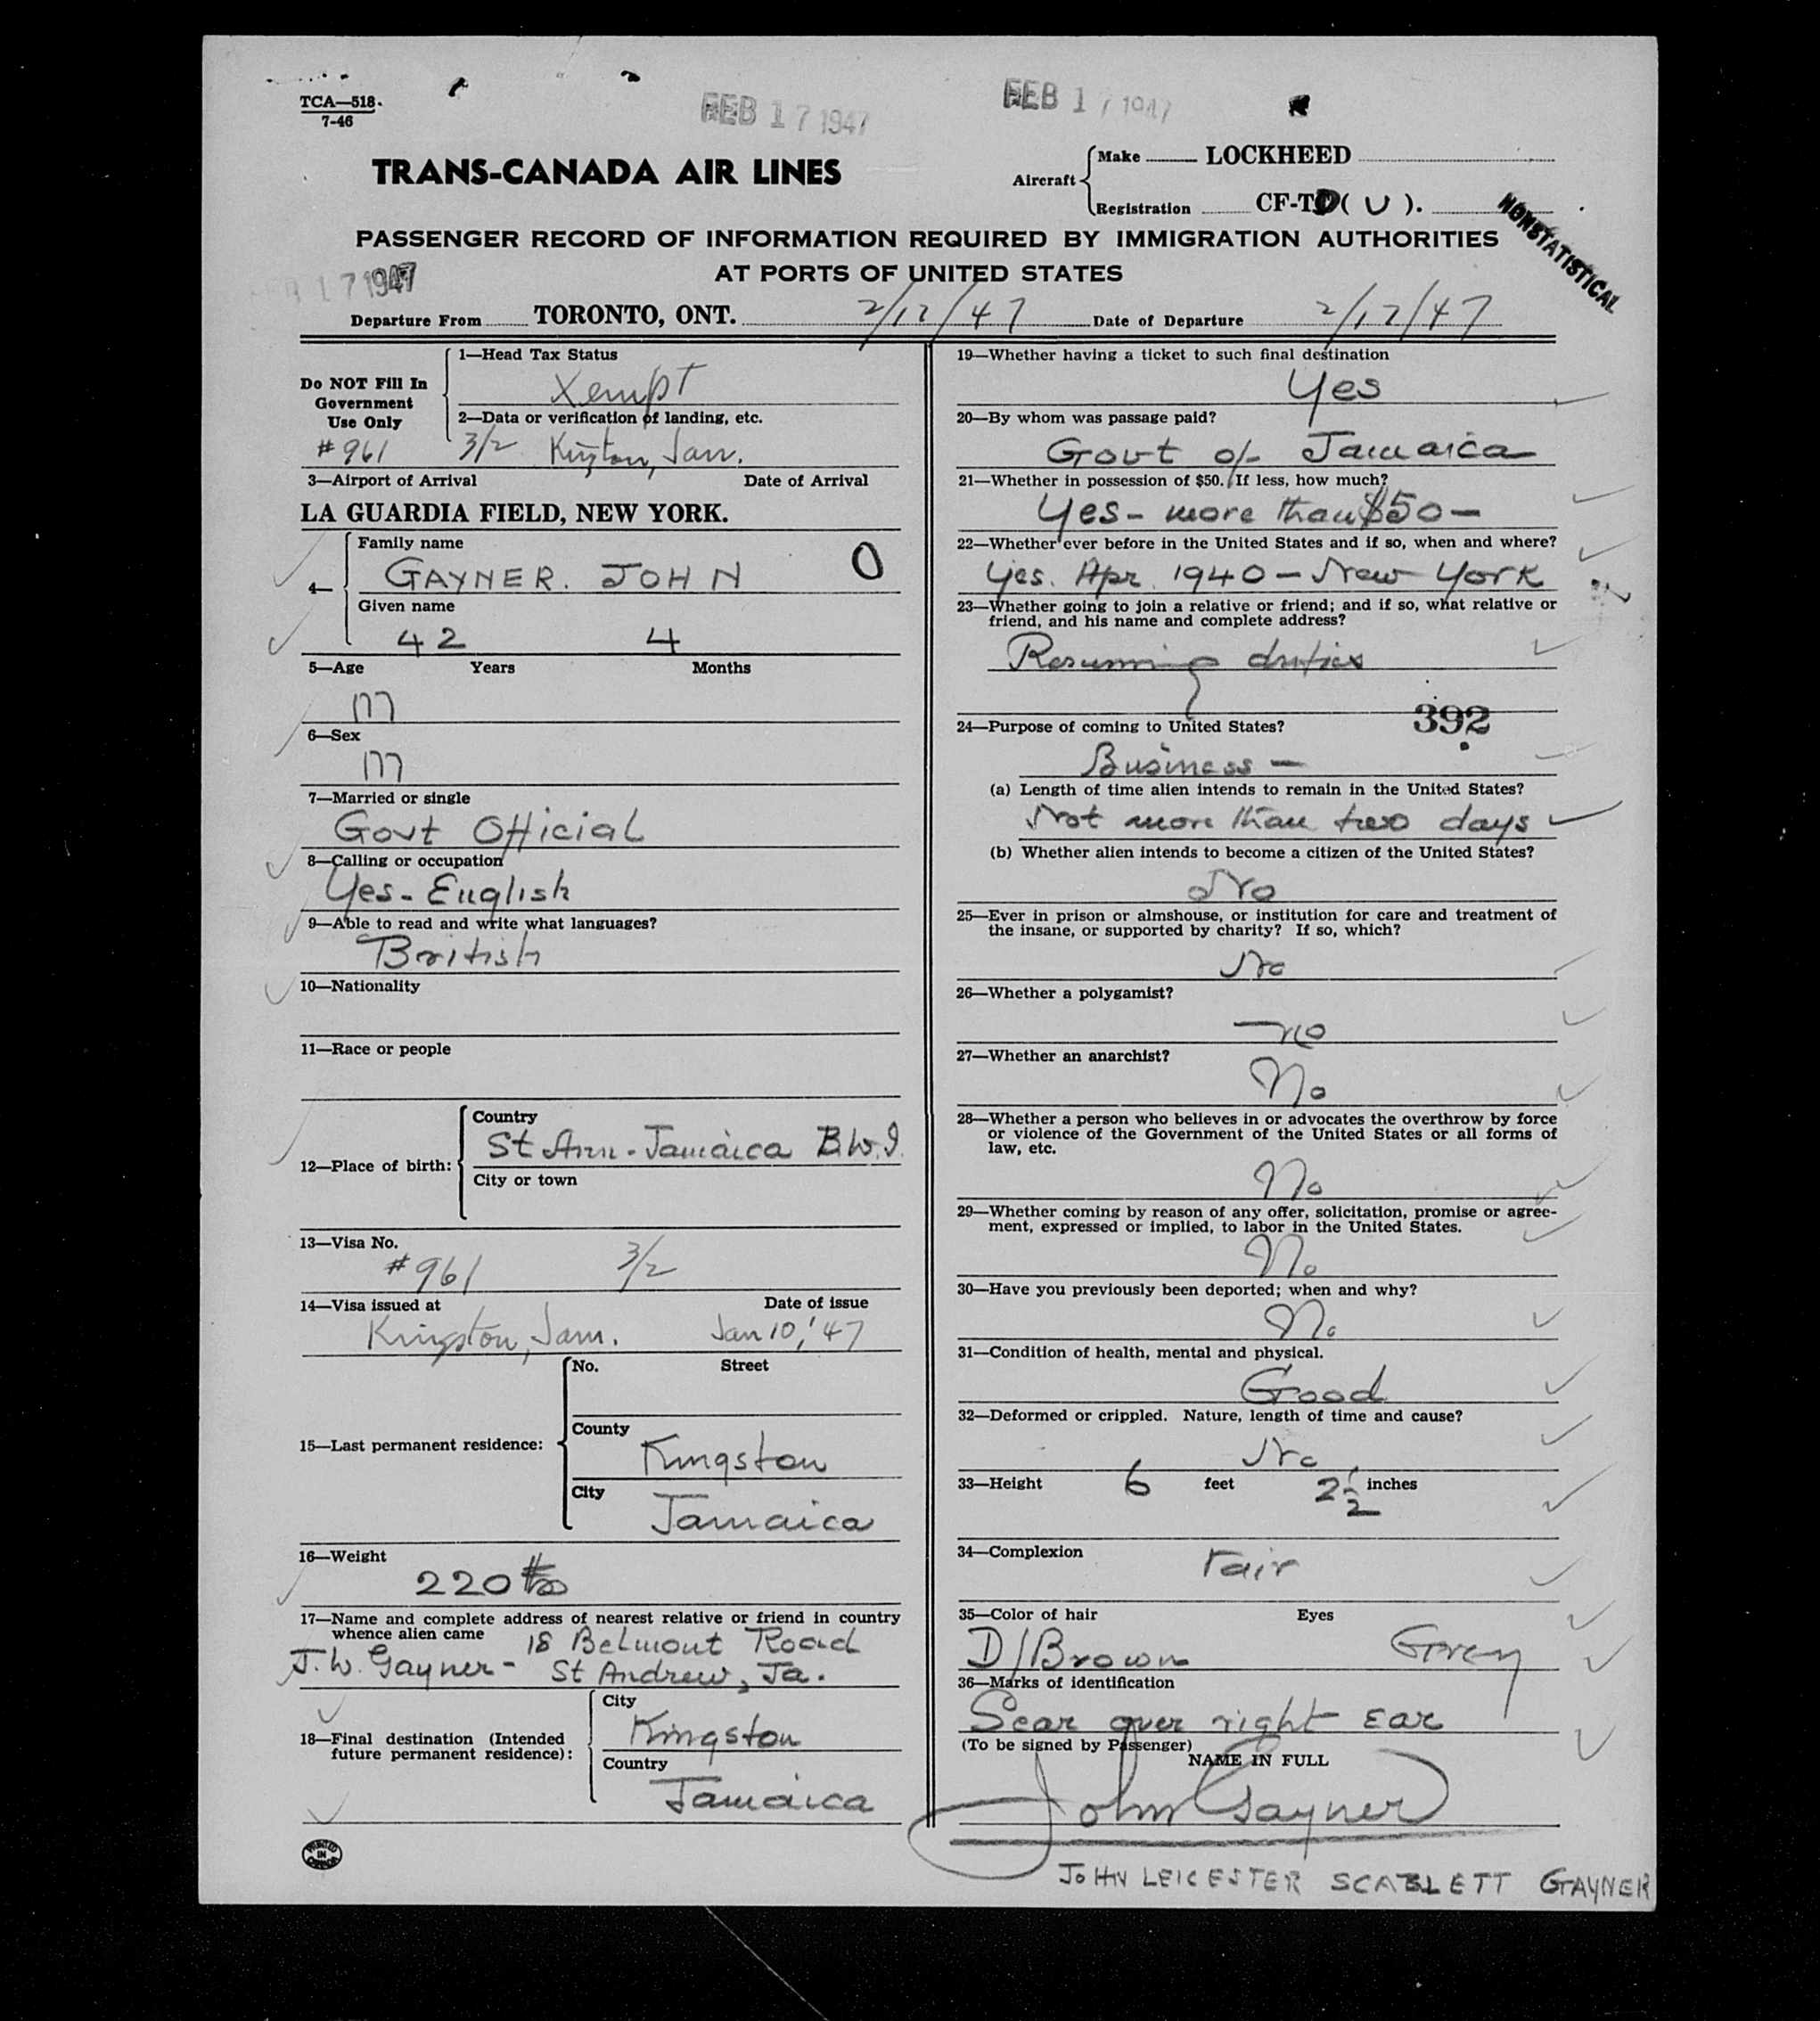 TCA—518.
7-46
FEB 17 1947
FEB 17 1947
TRANS-CANADA AIR LINES
Aircraft
Make LOCKHEED
Registration CF-T ( U ).
NONSTATISTICAL
PASSENGER RECORD OF INFORMATION REQUIRED BY IMMIGRATION AUTHORITIES
AT PORTS OF UNITED STATES
17 1947
Departure From TORONTO, ONT. 2/17/47 Date of Departure 2/17/47
Do NOT Fill In
Government
Use Only
#961
1—Head Tax Status
Xempt
2—Data or verification of landing, etc.
3/2 Kingston, Jam.
3—Airport of Arrival Date of Arrival
LA GUARDIA FIELD, NEW YORK.
4—
Family name
GAYNER. JOHN O
Given name
42 4
5—Age Years Months
M
6—Sex
M
7—Married or single
Govt Official
8—Calling or occupation
Yes - English
9—Able to read and write what languages?
British
10—Nationality
11—Race or people
12—Place of birth:
Country
St Ann - Jamaica B.W.I.
City or town
13—Visa No.
#961 3/2
14—Visa issued at Date of issue
Kingston, Jam. Jan 10, '47
15—Last permanent residence:
No. Street
County
Kingston
City
Jamaica
16—Weight
220 lbs
17—Name and complete address of nearest relative or friend in country
whence alien came 18 Belmont Road
J. W. Gayner - St Andrew, Ja.
18—Final destination (Intended
future permanent residence):
City
Kingston
Country
Jamaica
PRINTED IN CANADA
19—Whether having a ticket to such final destination
Yes
20—By whom was passage paid?
Govt of Jamaica
21—Whether in possession of $50. If less, how much?
Yes - more than $50 —
22—Whether ever before in the United States and if so, when and where?
Yes. Apr. 1940 — New York
23—Whether going to join a relative or friend; and if so, what relative or
friend, and his name and complete address?
Resuming duties
24—Purpose of coming to United States? 392
Business —
(a) Length of time alien intends to remain in the United States?
Not more than two days
(b) Whether alien intends to become a citizen of the United States?
No
25—Ever in prison or almshouse, or institution for care and treatment of
the insane, or supported by charity? If so, which?
No
26—Whether a polygamist?
no
27—Whether an anarchist?
No
28—Whether a person who believes in or advocates the overthrow by force
or violence of the Government of the United States or all forms of
law, etc.
No
29—Whether coming by reason of any offer, solicitation, promise or agree-
ment, expressed or implied, to labor in the United States.
No
30—Have you previously been deported; when and why?
No
31—Condition of health, mental and physical.
Good
32—Deformed or crippled. Nature, length of time and cause?
No
33—Height 6 feet 2 1/2 inches
34—Complexion Fair
35—Color of hair Eyes
D/Brown Grey
36—Marks of identification
Scar over right ear
(To be signed by Passenger)
NAME IN FULL
John Gayner
JOHN LEICESTER SCARLETT GAYNER